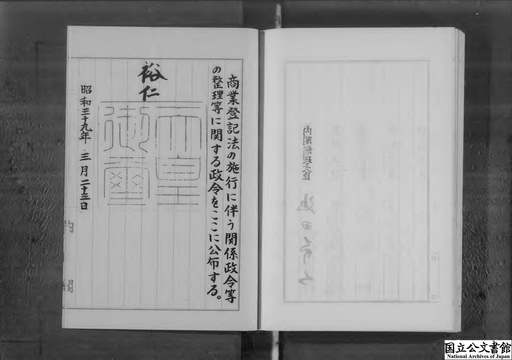 商業登記法の施行に伴う関係政令等
の整理等に関する政令をここに公布する。
裕仁
天皇
御璽
昭和三十九年三月二十三日
内閣
内閣総理大臣
国立公文書館
National Archives of Japan